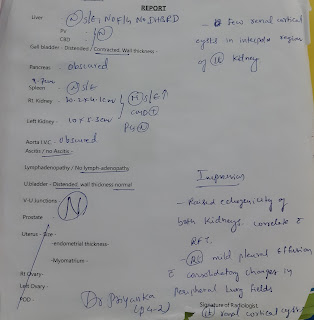 REPORT
Liver (N) S/E, No F/L No IHBRD
PV
CBD (N)
Gall bladder - Distended / Contracted. Wall thickness -
Pancreas - obscured
Spleen - (N) S/E
Rt Kidney - 10.2x4.1cm (N) S/E↑
CMD
Left Kidney - 10x5.3cm
PCS (N)
Aorta I.V.C - obscured
Ascitis / no Ascitis -
Lymphadenopathy / No lymph-adenopathy
U.bladder - Distended, wall thickness normal
V-U Junctions
(N)
Prostate
Uterus - Size -
-endometrial thickness-
-Myometrium -
Rt Ovary-
Left Ovary -
POD -
Dr Priyanka
- few renal cortical
cysts in interpolar region
of Kidney
Impression
- Raised echogenicity of
both kidneys. correlate c
RFT.
- mild pleural effusion
c consolidatory changes in
peripheral lung fields
Signature of Radiologist
renal cortical cysts